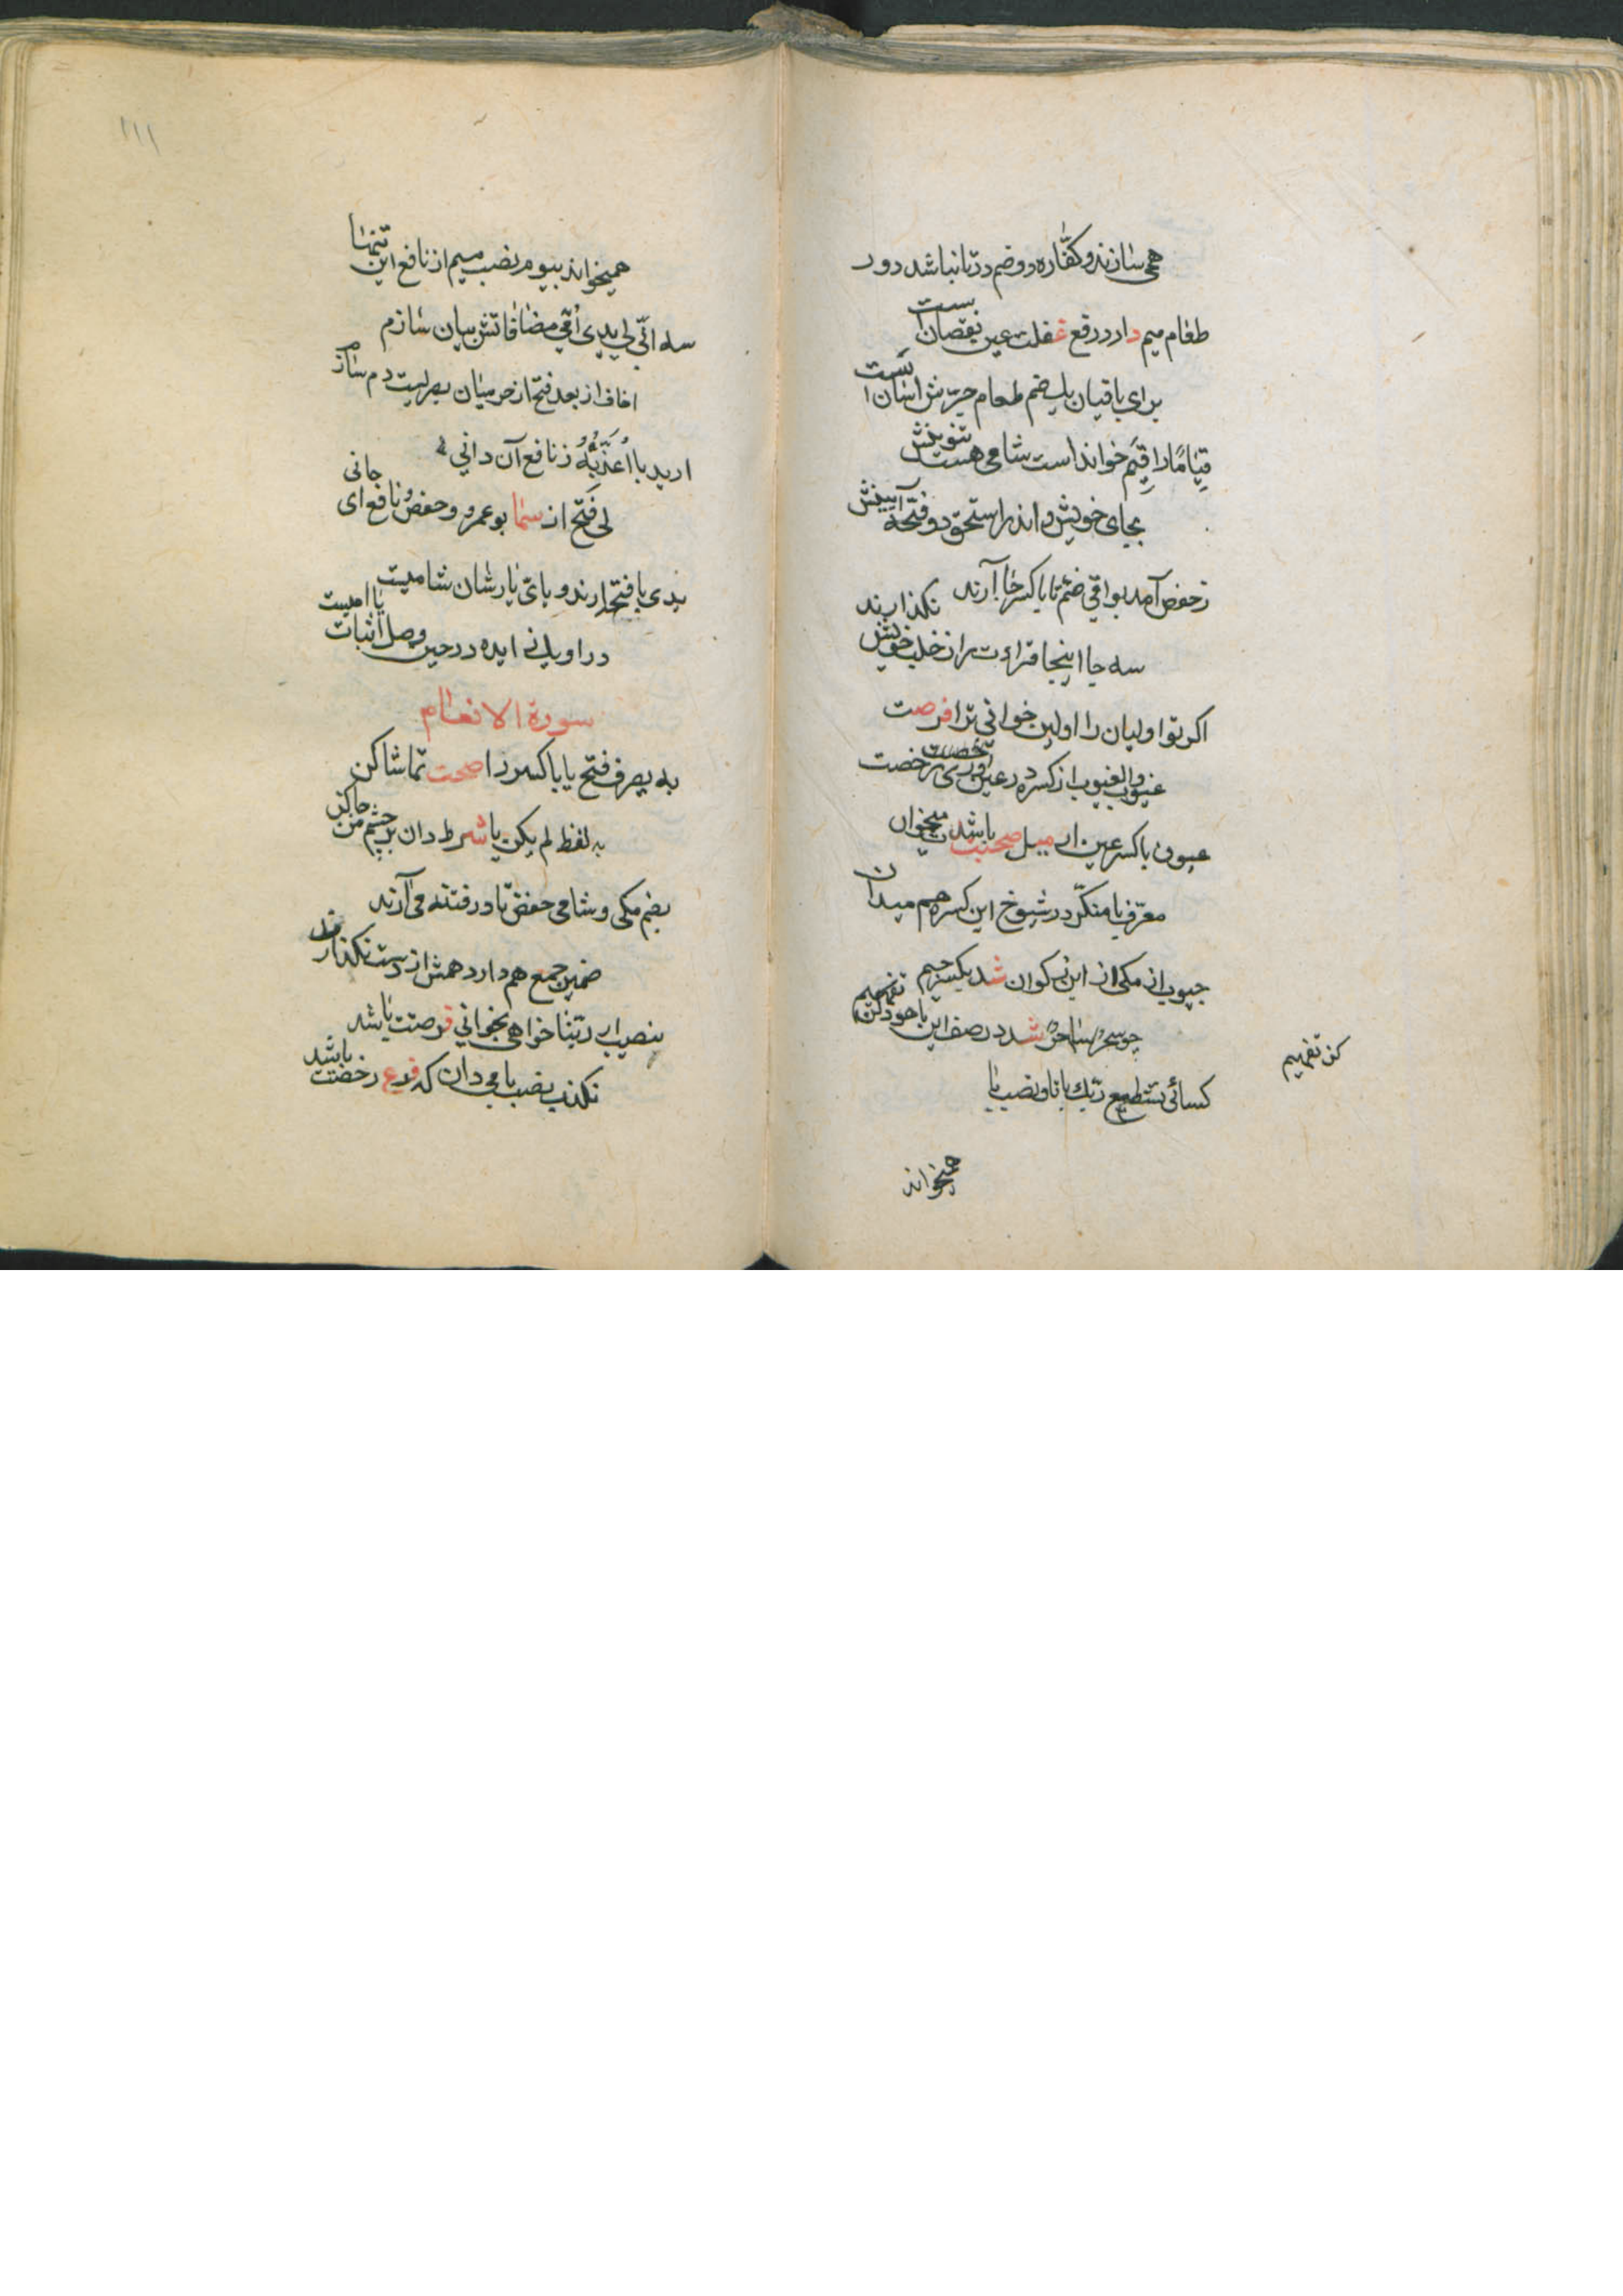 همی سازند و کفاره دو ضم در تا نباشد دور
طعام میم دارد رفع غفلت عین نقصانست
برای باقیان یك ضم طعام جرش آسانست
قِیَامًا را قِیَم خواند است شامی هست تنوینش
بجای خویش واندر استحق دو فتحه آیینش
ز حفص آمد بواقی ضم تا با کسر حا آرند
سه جا اینجا قراءت را ز خلب خویش نکذارند
اکر تو اولیان را اولین خوانی ترا فرصت
عیوب والغیوب از کسره در عین آوری رخصت
عیون با کسر عین ار میل صحبت باشدت میخوان
معرف با منکر در شیوخ این کسره هم میدان
جیوب از مکی از این کوان شد بکسر جیم
چو سحر ساحر شد در صف این با هود کن تفهیم
کن تفهیم
کسائی تستطیع ربك با تا و نصب با
همیخواند
۱۱۱
همیخواند بیوم نصب میم از نافع این تنها
سه انی لی یدی امی مضافاتش بیان سازم
اخاف از بعد فتح از حرمیان بصریست دمسازم
ارید با اُعَذِّبُهُ ز نافع آن دانی
لی فتح از سما بو عمرو و حفص و نافع ای جانی
یدی با فتح ارند و بای یارشان شامیست
در اویلنی ایده در حین وصل اثبات یا امیست
سورة الانعام
به یصرف فتح یا با کسر را صحت تماشا کن
به لفظ لم یکن یا شرط دان بر چشم من جا کن
بضم مکی و شامی حفص تا در فتنه می آرند
ضمین جمع هم دارد همش از دست نکذارند
بنصب ار ربنا خواهی بخوانی فرصتت باشد
نکذب نصب با می دان که فرع رخصت باشد